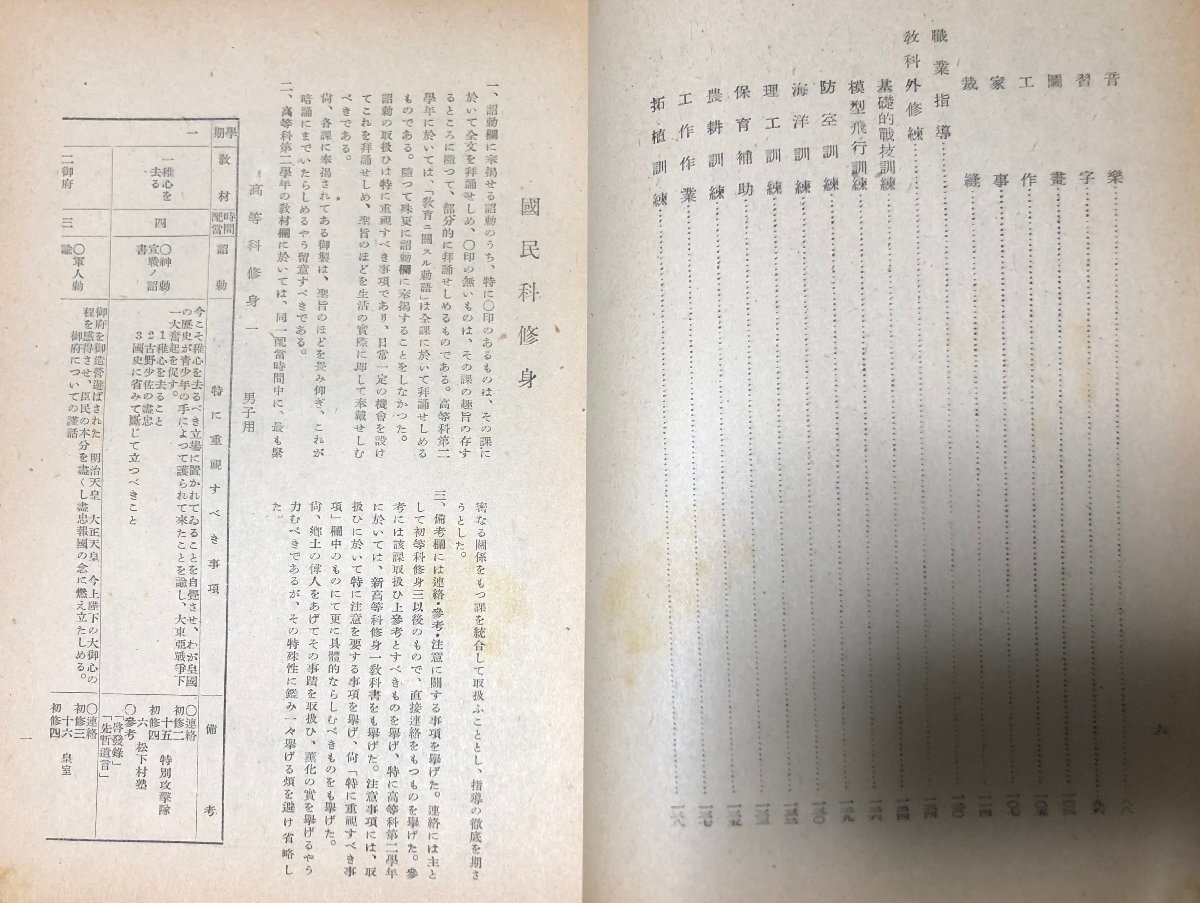 音樂
習字
圖畫
工作
家事
裁縫
職業指導
敎科外修練
基礎的戰技訓練
模型飛行訓練
防空訓練
海洋訓練
理工訓練
保育補助
農耕訓練
工作作業
拓植訓練
六
國民科修身
一、詔勅欄に奉揭せる詔勅のうち、特に〇印のあるものは、その課に
於いて全文を拜誦せしめ、〇印の無いものは、その課の趣旨の存す
るところに隨つて、部分的に拜誦せしめるものである。高等科第二
學年に於いては、「敎育ニ關スル勅語」は全課に於いて拜誦せしめる
ものである。隨つて殊更に詔勅欄に奉揭することをしなかつた。
詔勅の取扱ひは特に重視すべき事項であり、日常一定の機會を設け
てこれを拜誦せしめ、聖旨のほどを生活の實際に卽して奉戴せしむ
べきである。
尙、各課に奉揭されてある御製は、聖旨のほどを畏み仰ぎ、これが
暗誦にまでいたらしめるやう留意すべきである。
二、高等科第二學年の敎材欄に於いては、同一配當時間中に、最も緊
密なる關係をもつ課を統合して取扱ふこととし、指導の徹底を期さ
うとした。
三、備考欄には連絡・參考・注意に關する事項を擧げた。連絡には主と
して初等科修身三以後のもので、直接連絡をもつものを擧げた。參
考には該課取扱ひ上參考とすべきものを擧げ、特に高等科第二學年
に於いては、新高等科修身一敎科書をも擧げた。注意事項には、取
扱ひに於いて特に注意を要する事項を擧げ、尙「特に重視すべき事
項」欄中のものにて更に具體的ならしむべきものをも擧げた。
尙、鄕土の偉人をあげてその事蹟を取扱ひ、薰化の實を擧げるやう
力むべきであるが、その特殊性に鑑み一々擧げる煩を避け省略し
た。
高等科修身一 男子用
學期
敎材
時間配當
詔勅
特に重視すべき事項
備考
一
一 稚心を
去る
四
〇神勅
宣戰ノ詔
書
今こそ稚心を去るべき立場に置かれてゐることを自覺させ、わが皇國
の歷史が靑少年の手によつて護られて來たことを諭し、大東亞戰爭下
一大奮起を促す。
1 稚心を去ること
2 古野少佐の盡忠
3 國史に省みて斷じて立つべきこと
〇連絡
初修二
十五 特別攻擊隊
初修四
六 松下村塾
〇參考
「啓發錄」
「先哲遺言」
二 御府
三
〇軍人勅
諭
御府を御造營遊ばされた 明治天皇 大正天皇 今上陛下の大御心の
程を感得させ、臣民の本分を盡くし盡忠報國の念に燃え立たしめる。
御府についての謹話
〇連絡
初修三
十六 皇室
初修四
一